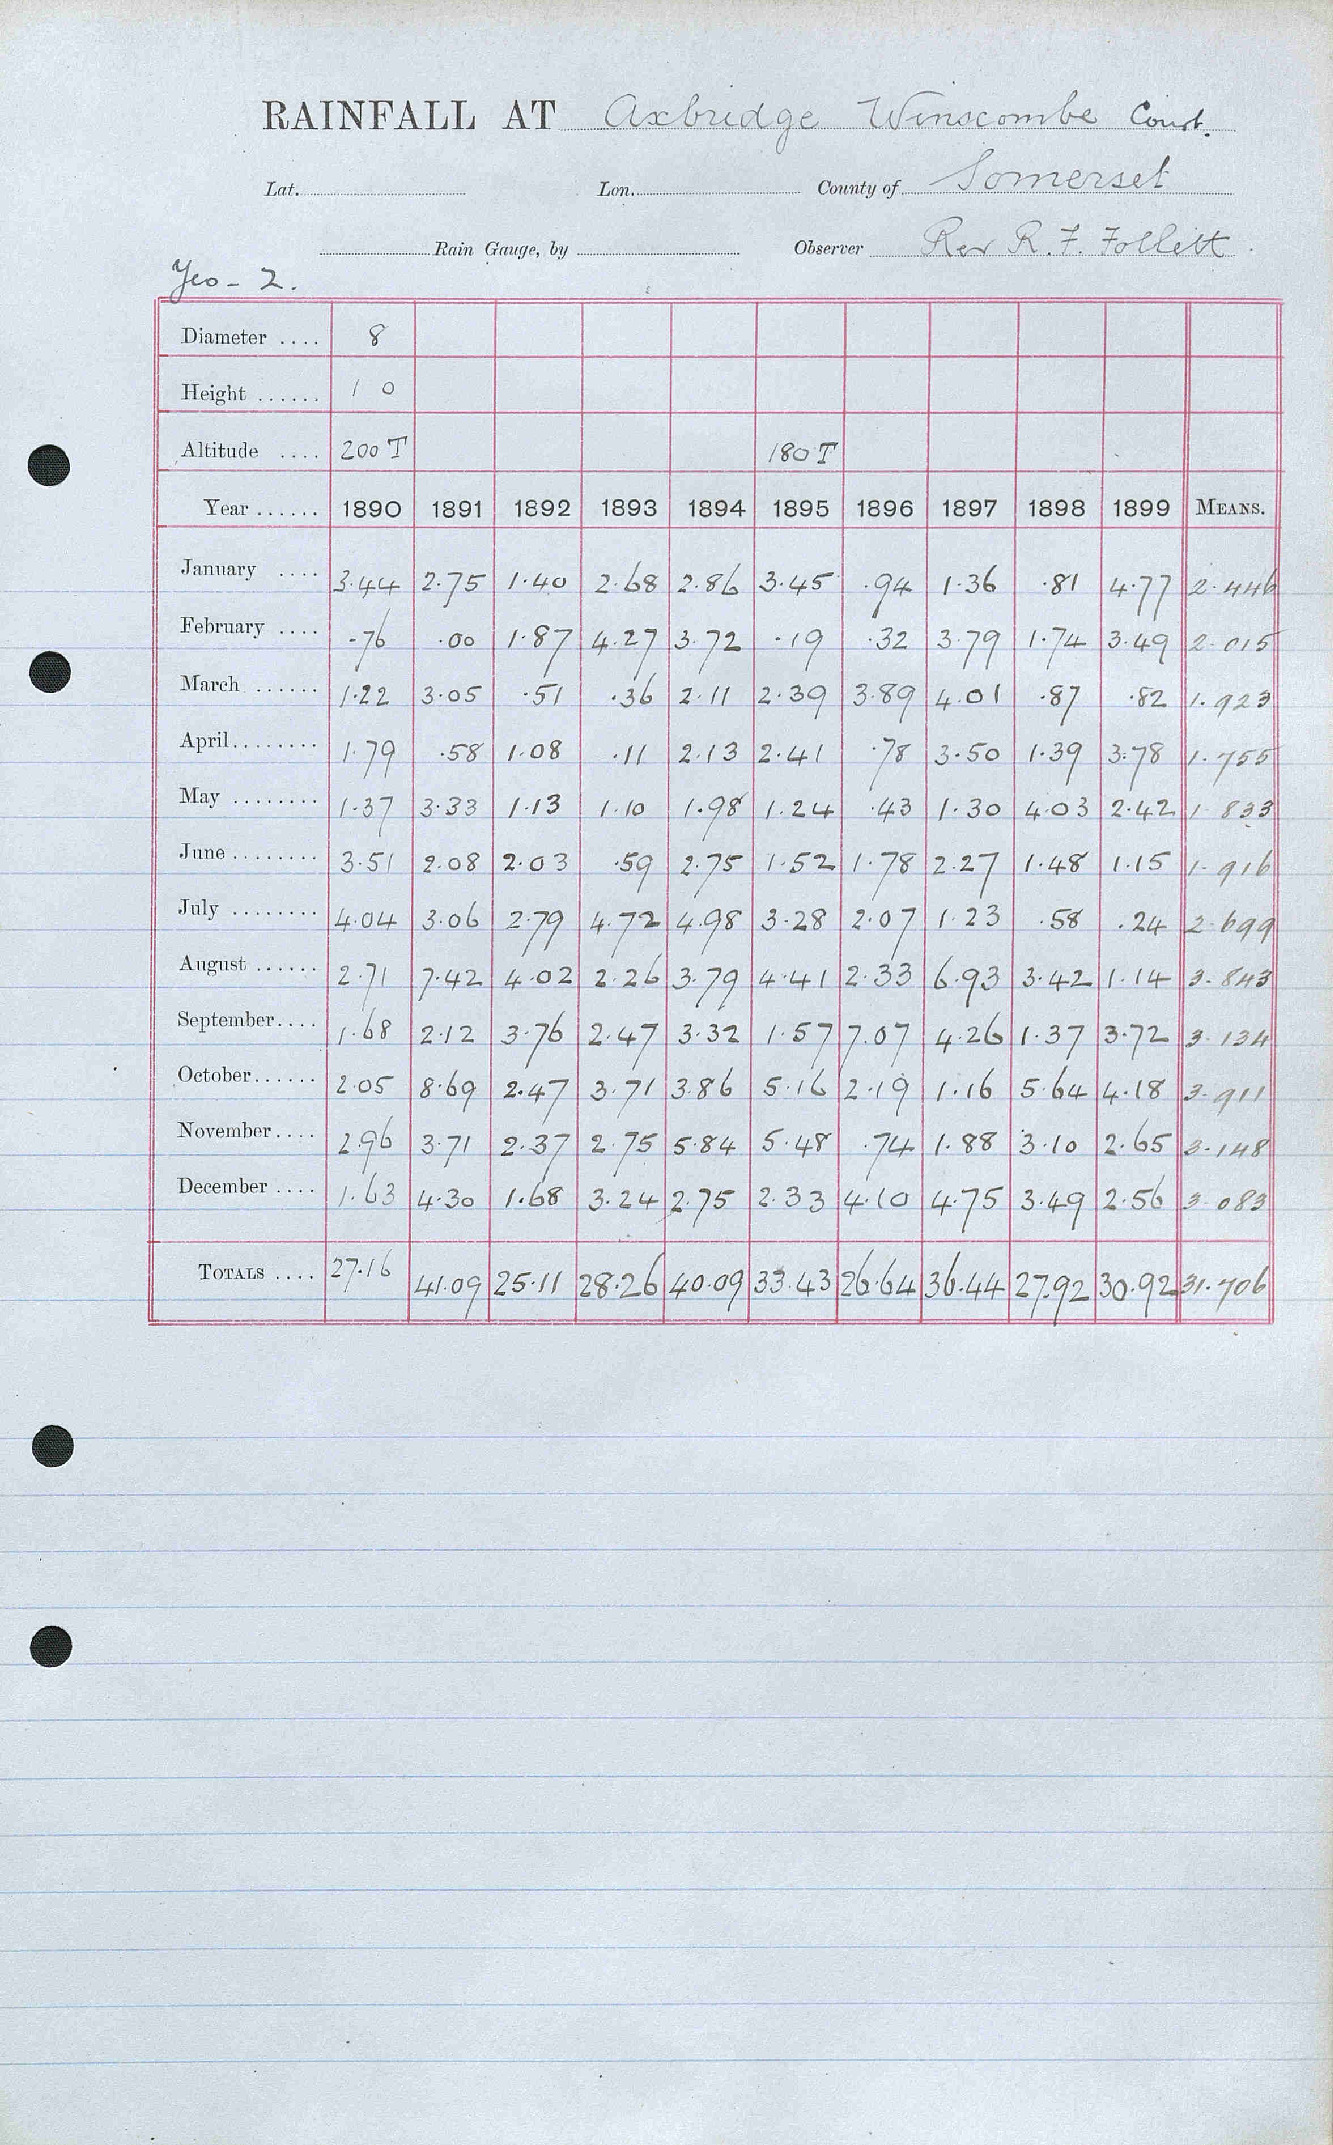 RAINFALL AT Axbridge Winscombe Court.
Lat. Lon. County of Somerset
Rain Gauge, by Observer Rev R. F. Follett
Yeo - 2.
Diameter .... 8
Height ...... 1 0
Altitude .... 200 T 180 T
Year ...... 1890 1891 1892 1893 1894 1895 1896 1897 1898 1899 MEANS.
January .... 3.44 2.75 1.40 2.68 2.86 3.45 .94 1.36 .81 4.77 2.446
February .... .76 .00 1.87 4.27 3.72 .19 .32 3.79 1.74 3.49 2.015
March ...... 1.22 3.05 .51 .36 2.11 2.39 3.89 4.01 .87 .82 1.923
April........ 1.79 .58 1.08 .11 2.13 2.41 .78 3.50 1.39 3.78 1.755
May ........ 1.37 3.33 1.13 1.10 1.98 1.24 .43 1.30 4.03 2.42 1.833
June ........ 3.51 2.08 2.03 .59 2.75 1.52 1.78 2.27 1.48 1.15 1.916
July ........ 4.04 3.06 2.79 4.72 4.98 3.28 2.07 1.23 .58 .24 2.699
August ...... 2.71 7.42 4.02 2.26 3.79 4.41 2.33 6.93 3.42 1.14 3.843
September.... 1.68 2.12 3.76 2.47 3.32 1.57 7.07 4.26 1.37 3.72 3.134
October...... 2.05 8.69 2.47 3.71 3.86 5.16 2.19 1.16 5.64 4.18 3.911
November.... 2.96 3.71 2.37 2.75 5.84 5.48 .74 1.88 3.10 2.65 3.148
December .... 1.63 4.30 1.68 3.24 2.75 2.33 4.10 4.75 3.49 2.56 3.083
TOTALS .... 27.16 41.09 25.11 28.26 40.09 33.43 26.64 36.44 27.92 30.92 31.706